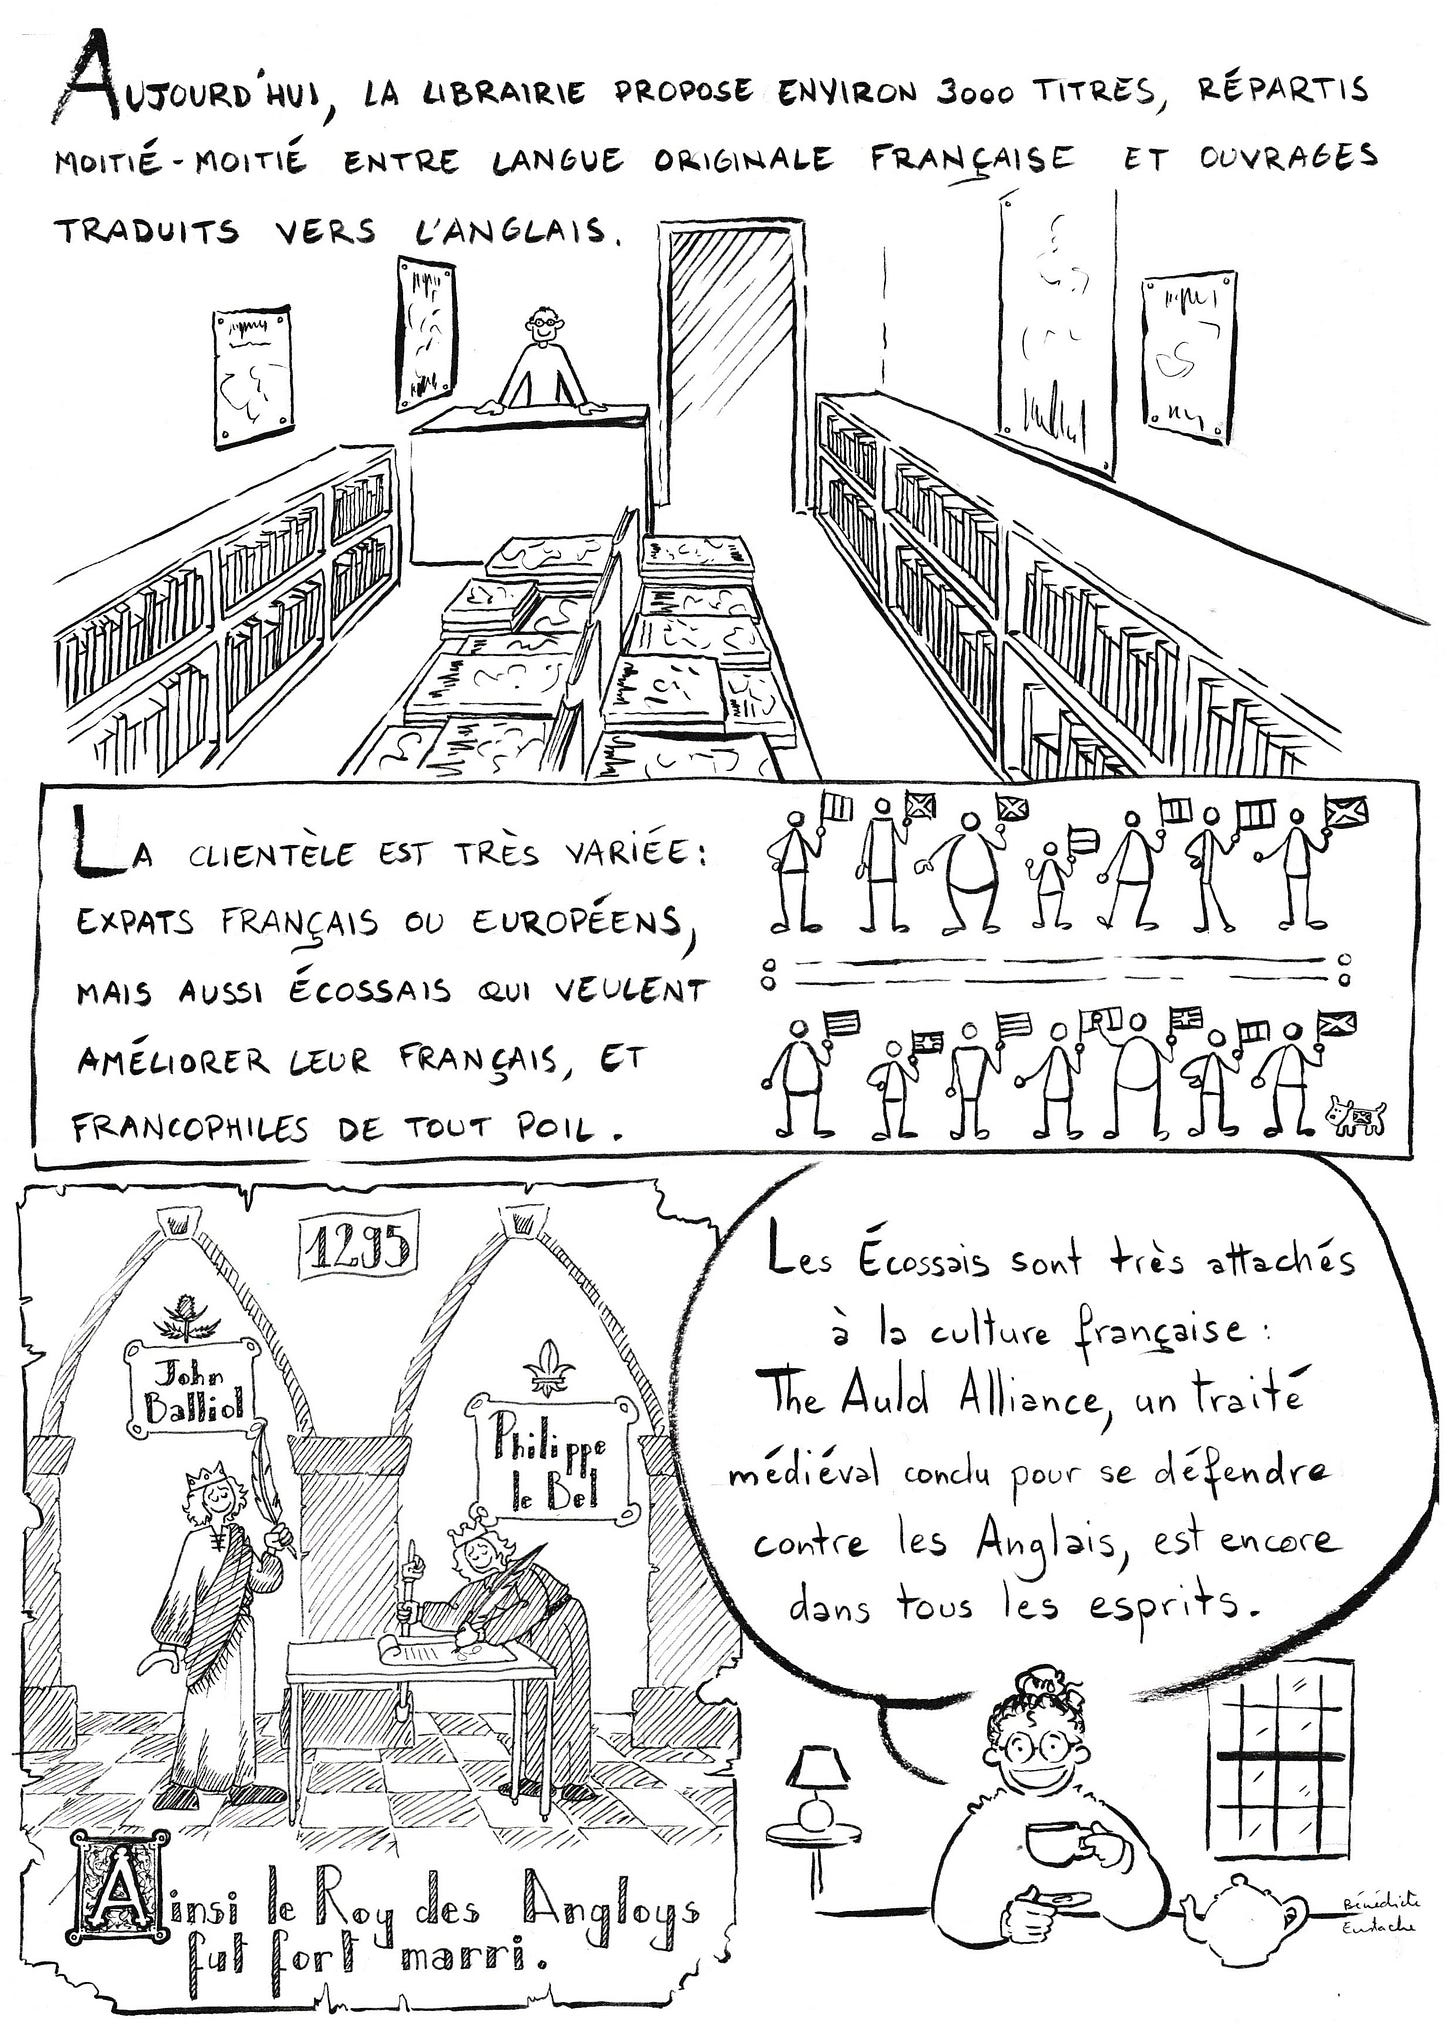 AUJOURD'HUI, LA LIBRAIRIE PROPOSE ENVIRON 3000 TITRES, RÉPARTIS
MOITIÉ-MOITIÉ ENTRE LANGUE ORIGINALE FRANÇAISE ET OUVRAGES
TRADUITS VERS L'ANGLAIS.
LA CLIENTÈLE EST TRÈS VARIÉE:
EXPATS FRANÇAIS OU EUROPÉENS,
MAIS AUSSI ÉCOSSAIS QUI VEULENT
AMÉLIORER LEUR FRANÇAIS, ET
FRANCOPHILES DE TOUT POIL.
1295
John
Balliol
Philippe
le Bel
Ainsi le Roy des Angloys
fut fort marri.
Les Écossais sont très attachés
à la culture française :
The Auld Alliance, un traité
médiéval conclu pour se défendre
contre les Anglais, est encore
dans tous les esprits.
Bénédicte
Eustache